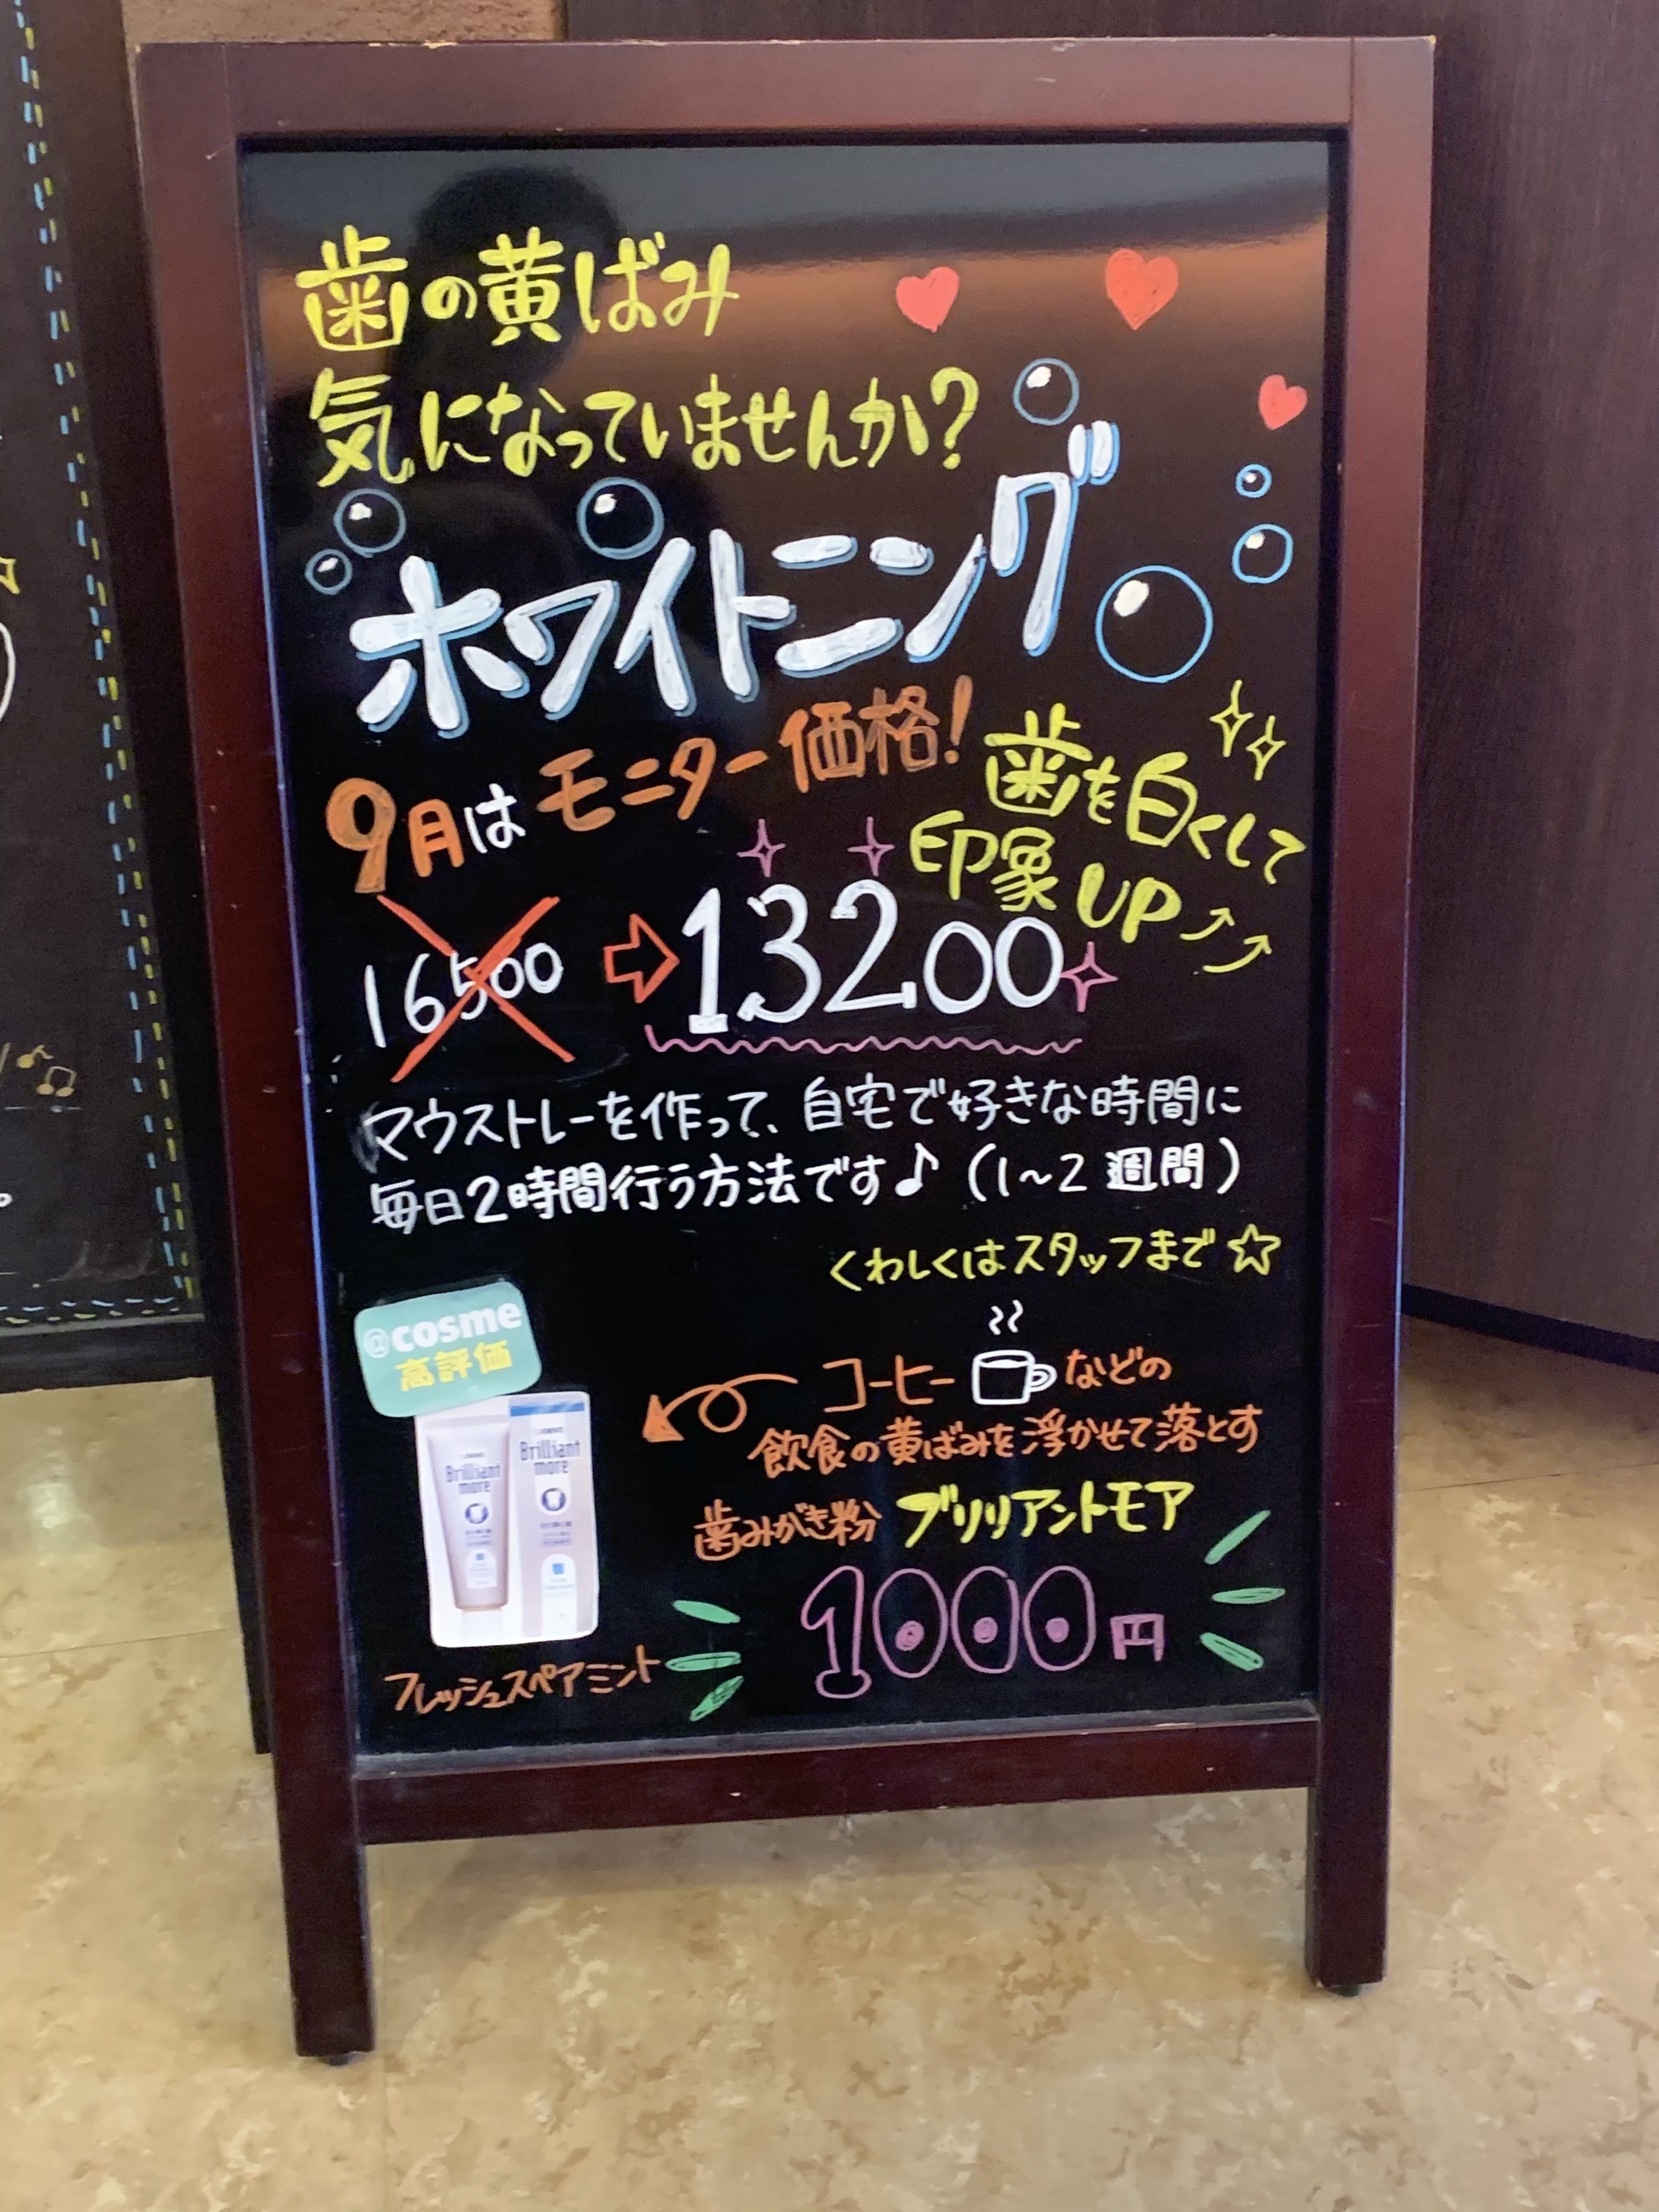 歯の黄ばみ
気になっていませんか?
ホワイトニング
9月はモニター価格!
歯を白くして
印象UP
16500 ⇨ 13200
マウストレーを作って、自宅で好きな時間に
毎日2時間行う方法です♪(1〜2週間)
くわしくはスタッフまで☆
@cosme
高評価
コーヒーなどの
飲食の黄ばみを浮かせて落とす
歯みがき粉 ブリリアントモア
1000円
Brilliant
more
Brilliant
more
フレッシュスペアミント